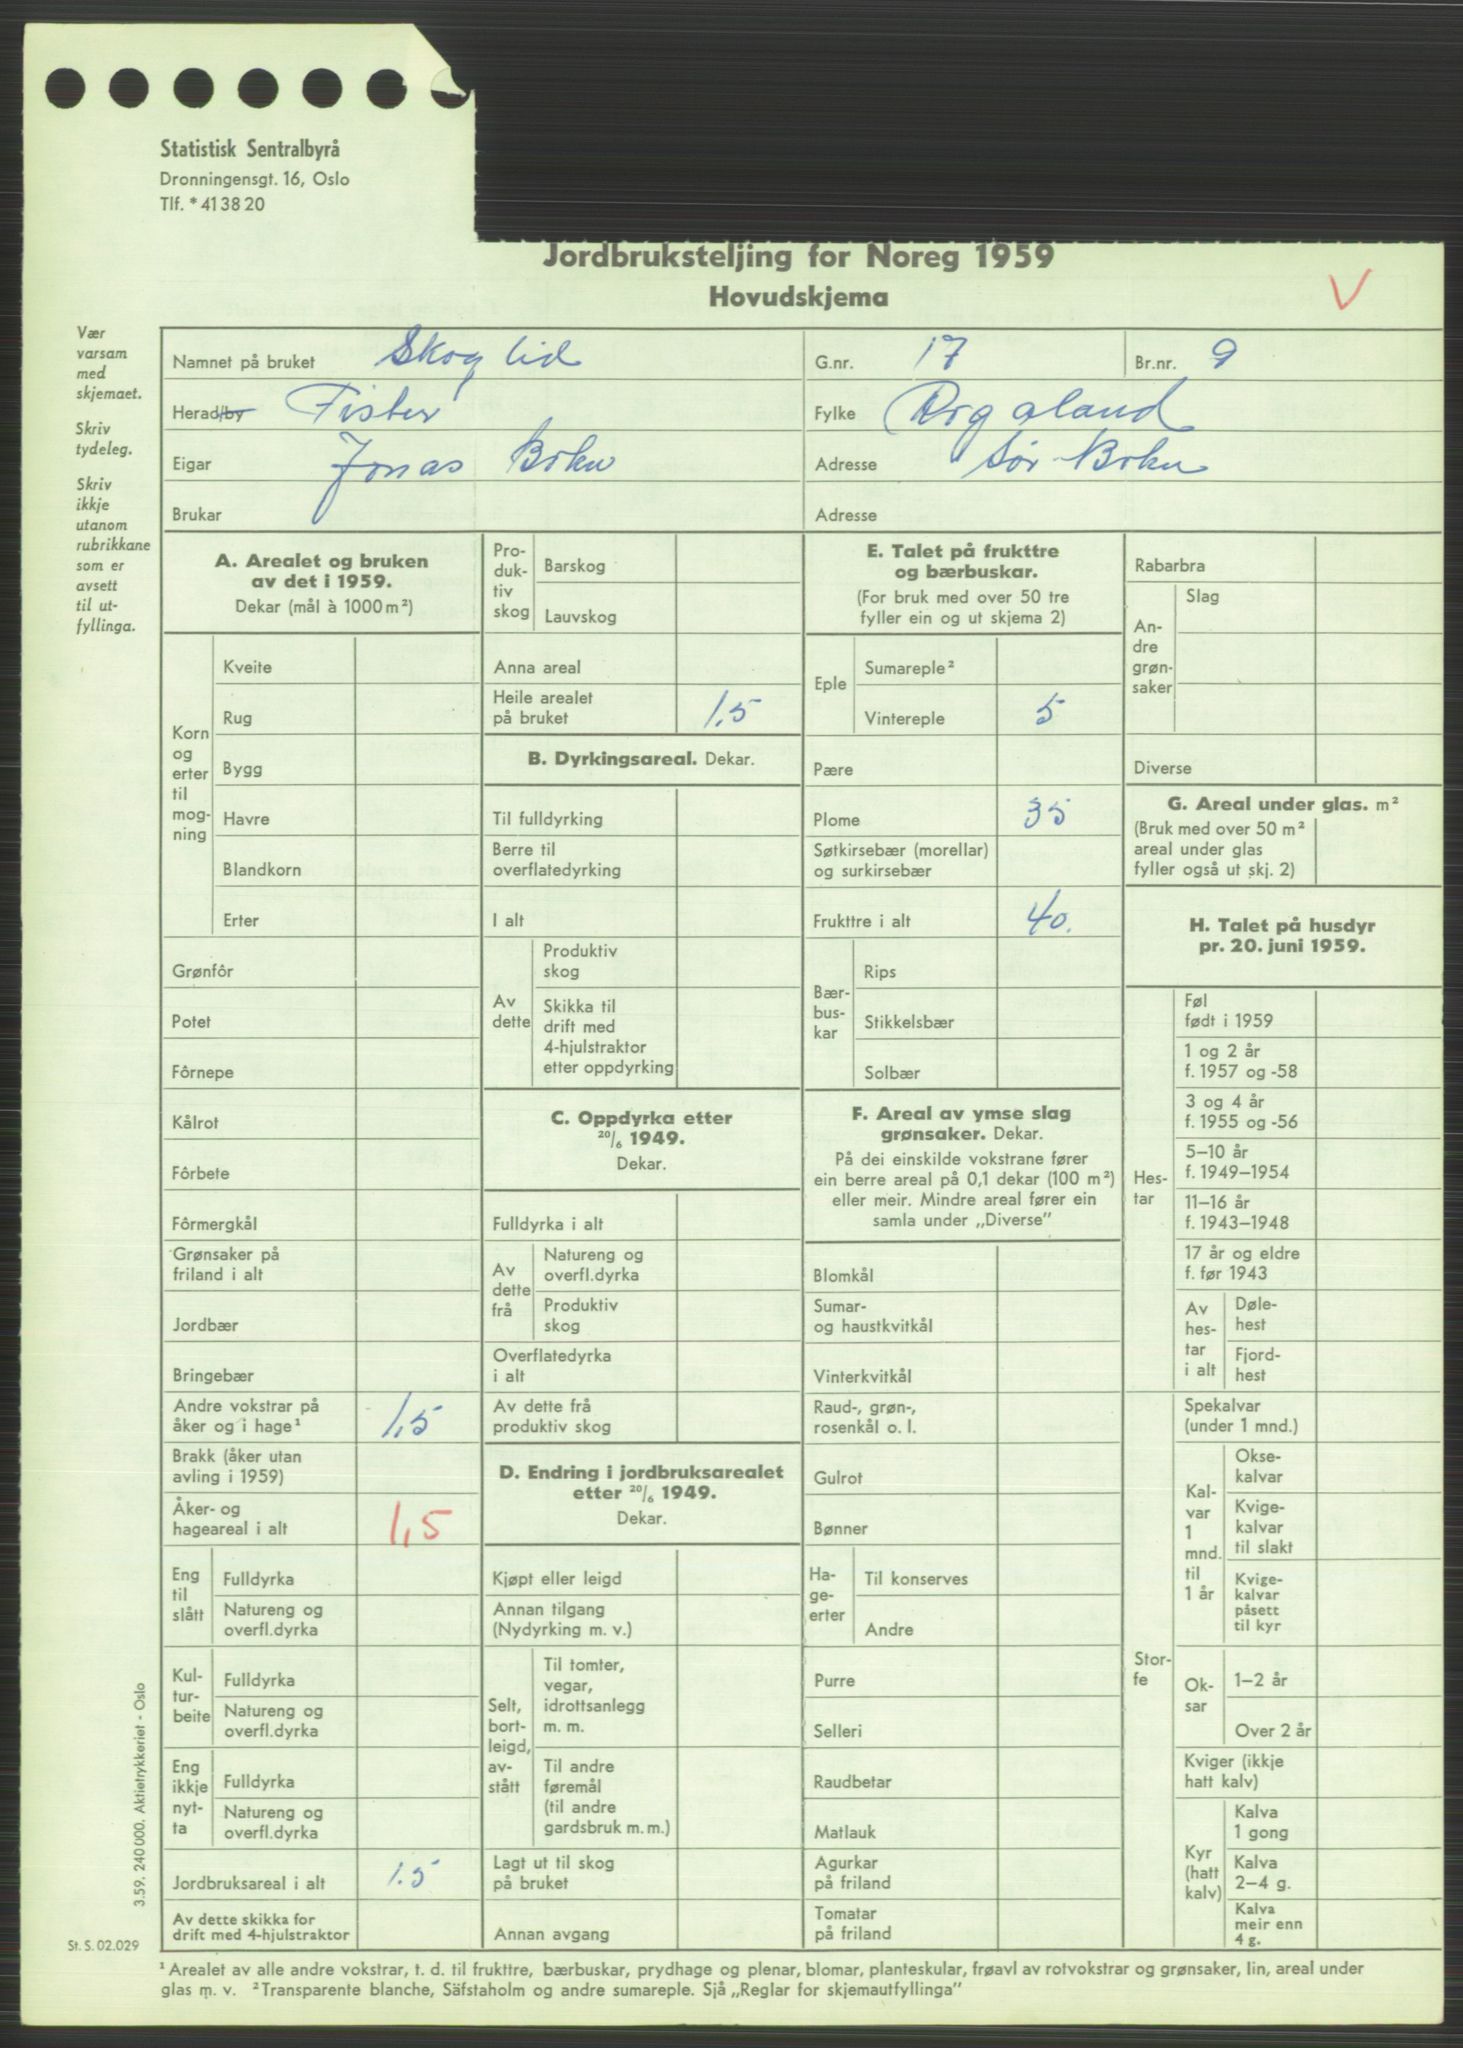 Statistisk Sentralbyrå
Dronningensgt. 16, Oslo
Tlf. * 41 38 20
Jordbruksteljing for Noreg 1959
Hovudskjema
V
Vær
varsam
med
skjemaet.
Skriv
tydeleg.
Skriv
ikkje
utanom
rubrikkane
som er
avsett
til ut-
fyllinga.
Namnet på bruket Skoglid G.nr. 17 Br.nr. 9
Herad/by Fister Fylke Rogaland
Eigar Jonas Bokn Adresse Sør-Bokn
Brukar Adresse
A. Arealet og bruken
av det i 1959.
Dekar (mål à 1000 m²)
Korn
og
erter
til
mog-
ning
Kveite
Rug
Bygg
Havre
Blandkorn
Erter
Grønfôr
Potet
Fôrnepe
Kålrot
Fôrbete
Fôrmergkål
Grønsaker på
friland i alt
Jordbær
Bringebær
Andre vokstrar på
åker og i hage¹ 1,5
Brakk (åker utan
avling i 1959)
Åker- og
hageareal i alt 1,5
Eng
til
slått
Fulldyrka
Natureng og
overfl.dyrka
Kul-
tur-
beite
Fulldyrka
Natureng og
overfl.dyrka
Eng
ikkje
nyt-
ta
Fulldyrka
Natureng og
overfl.dyrka
Jordbruksareal i alt 1.5
Av dette skikka for
drift med 4-hjulstraktor
Pro-
duk-
tiv
skog
Barskog
Lauvskog
Anna areal
Heile arealet
på bruket 1,5
B. Dyrkingsareal. Dekar.
Til fulldyrking
Berre til
overflatedyrking
I alt
Av
dette
Produktiv
skog
Skikka til
drift med
4-hjulstraktor
etter oppdyrking
C. Oppdyrka etter
20/6 1949.
Dekar.
Fulldyrka i alt
Av
dette
frå
Natureng og
overfl.dyrka
Produktiv
skog
Overflatedyrka
i alt
Av dette frå
produktiv skog
D. Endring i jordbruksarealet
etter 20/6 1949.
Dekar.
Kjøpt eller leigd
Annan tilgang
(Nydyrking m. v.)
Selt,
bort-
leigd,
av-
stått
Til tomter,
vegar,
idrottsanlegg
m. m.
Til andre
føremål
(til andre
gardsbruk m. m.)
Lagt ut til skog
på bruket
Annan avgang
E. Talet på frukttre
og bærbuskar.
(For bruk med over 50 tre
fyller ein og ut skjema 2)
Eple
Sumareple²
Vintereple 5
Pære
Plome 35
Søtkirsebær (morellar)
og surkirsebær
Frukttre i alt 40.
Bær-
bus-
kar
Rips
Stikkelsbær
Solbær
F. Areal av ymse slag
grønsaker. Dekar.
På dei einskilde vokstrane fører
ein berre areal på 0,1 dekar (100 m²)
eller meir. Mindre areal fører ein
samla under „Diverse”
Blomkål
Sumar-
og haustkvitkål
Vinterkvitkål
Raud-, grøn-,
rosenkål o. l.
Gulrot
Bønner
Ha-
ge-
erter
Til konserves
Andre
Purre
Selleri
Raudbetar
Matlauk
Agurkar
på friland
Tomatar
på friland
Rabarbra
An-
dre
grøn-
saker
Slag
Diverse
G. Areal under glas. m²
(Bruk med over 50 m²
areal under glas
fyller også ut skj. 2)
H. Talet på husdyr
pr. 20. juni 1959.
Hes-
tar
Føl
født i 1959
1 og 2 år
f. 1957 og -58
3 og 4 år
f. 1955 og -56
5–10 år
f. 1949–1954
11–16 år
f. 1943–1948
17 år og eldre
f. før 1943
Av
hes-
tar
i alt
Døle-
hest
Fjord-
hest
Stor-
fe
Spekalvar
(under 1 mnd.)
Kal-
var
1
mnd.
til
1 år
Okse-
kalvar
Kvige-
kalvar
til slakt
Kvige-
kalvar
påsett
til kyr
Ok-
sar
1–2 år
Over 2 år
Kviger (ikkje
hatt kalv)
Kyr
(hatt
kalv)
Kalva
1 gong
Kalva
2–4 g.
Kalva
meir enn
4 g.
3.59. 240 000. Aktietrykkeriet - Oslo
St. S. 02.029
¹ Arealet av alle andre vokstrar, t. d. til frukttre, bærbuskar, prydhage og plenar, blomar, planteskular, frøavl av rotvokstrar og grønsaker, lin, areal under
glas m. v. ² Transparente blanche, Säfstaholm og andre sumareple. Sjå „Reglar for skjemautfyllinga”